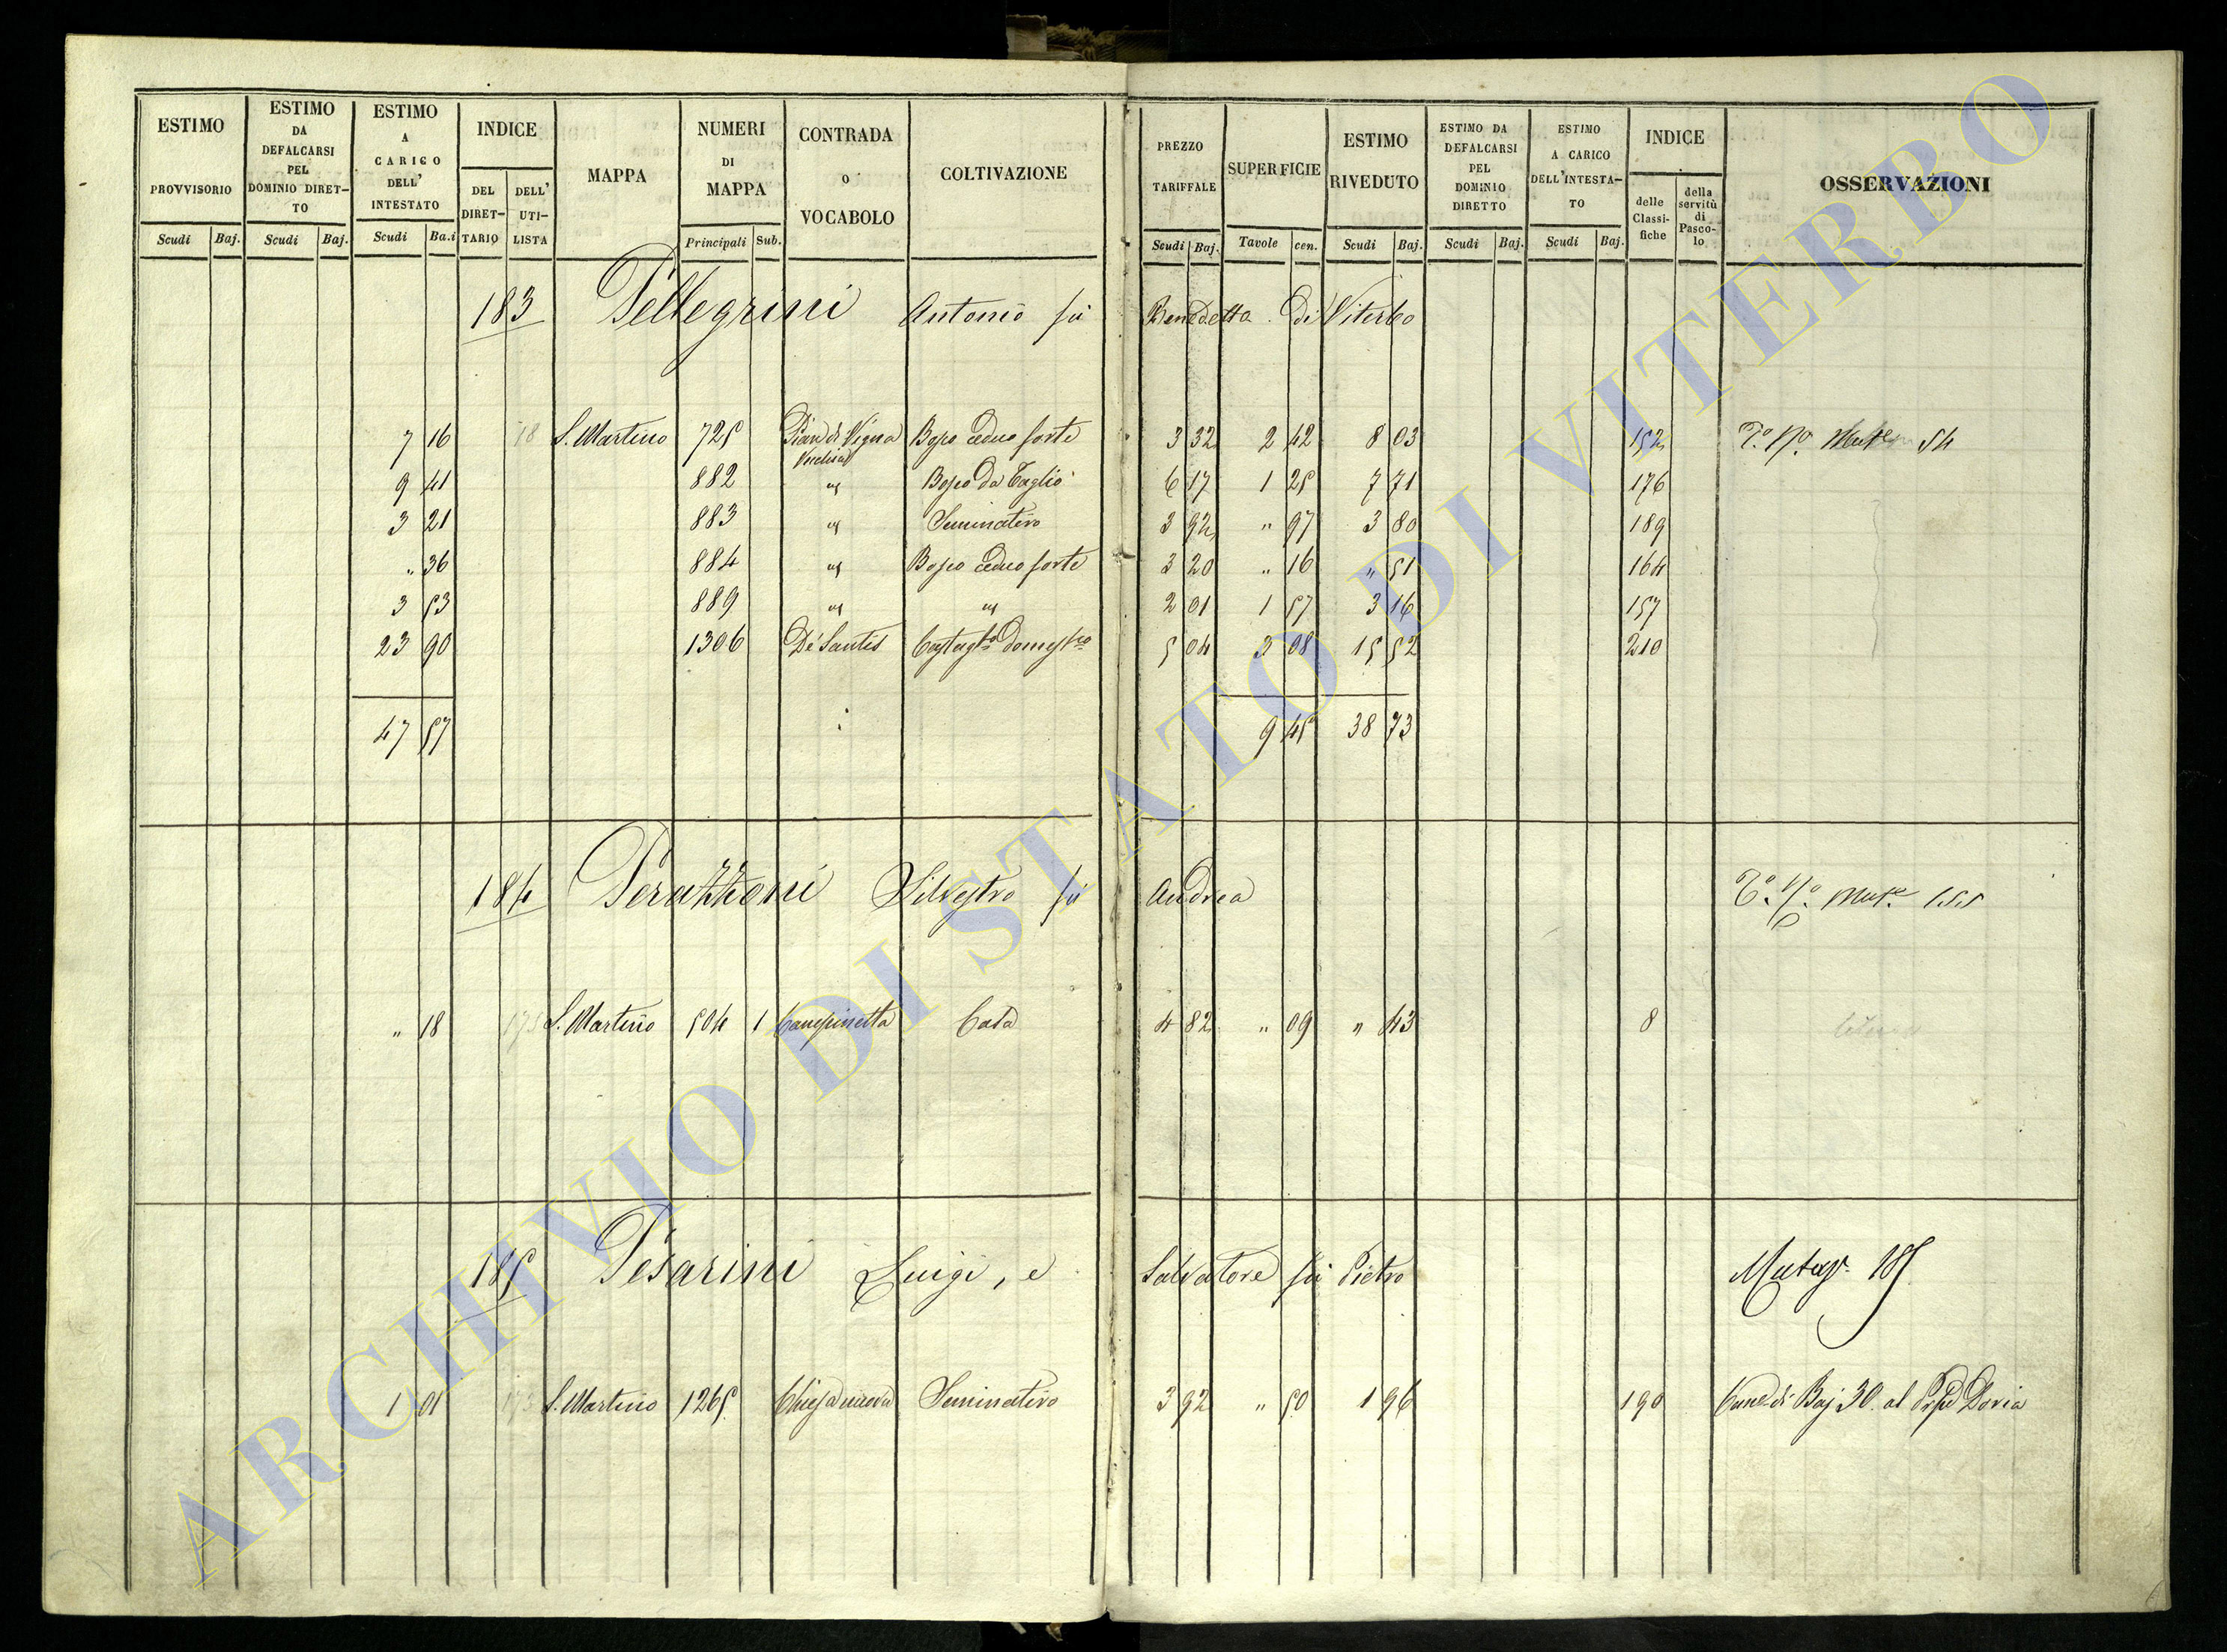 ESTIMO PROVVISORIO Scudi Baj. ESTIMO DA DEFALCARSI PEL DOMINIO DIRET-TO Scudi Baj. ESTIMO A CARICO DELL' INTESTATO Scudi Ba.i INDICE DEL DIRET-TARIO DELL' UTI-LISTA MAPPA NUMERI DI MAPPA Principali Sub. CONTRADA O VOCABOLO COLTIVAZIONE PREZZO TARIFFALE Scudi Baj. SUPERFICIE Tavole cen. ESTIMO RIVEDUTO Scudi Baj. ESTIMO DA DEFALCARSI PEL DOMINIO DIRETTO Scudi Baj. ESTIMO A CARICO DELL'INTESTA-TO Scudi Baj. INDICE delle Classi-fiche della servitù di Pasco-lo OSSERVAZIONI
183 Pellegrini Antonio fù Benedetto di Viterbo
7 16 18 S. Martino 725 Pian di Vigna Bosco ceduo forte 3 32 2 42 8 03 152 54
9 41 882 " Bosco da Taglio 6 17 1 25 7 71 176
3 21 883 " Seminativo 3 92 " 97 3 80 189
" 36 884 " Bosco ceduo forte 3 20 " 16 " 51 164
3 53 889 " " 2 01 1 57 3 16 157
23 90 1306 De Santis Castagto domestco 5 04 3 08 15 52 210
47 57 9 45 38 73
184 Perazzoni Silvestro fù Andrea
" 18 S. Martino 504 1 Campinetta Casa 4 82 " 09 " 43 8
185 Pesarini Luigi, e Salvatore fù Pietro 185
1 01 S. Martino 1265 Chiesa nuova Seminativo 3 92 " 50 1 96 190 di Baj 30 al Doria
ARCHIVIO DI STATO DI VITERBO